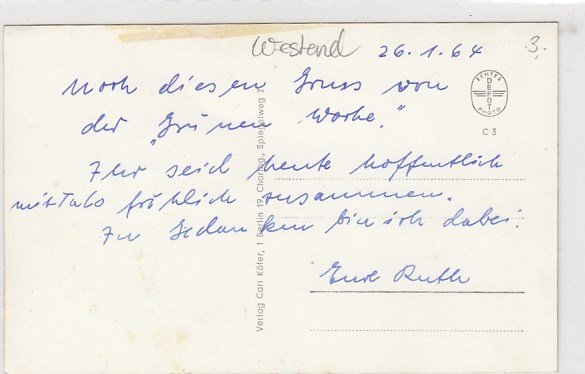 Westend 26.1.64
3.
Noch diesen Gruss von
der „Grünen Woche."
Ihr seid heute hoffentlich
mit Tabs fröhlich zusammen.
In Gedanken bin ich dabei.
Eure Ruth
ECHTES
DEFOT
PHOTO
C 3
Verlag Carl Köfer, 1 Berlin 19, Charlbg., Spiegelweg 2